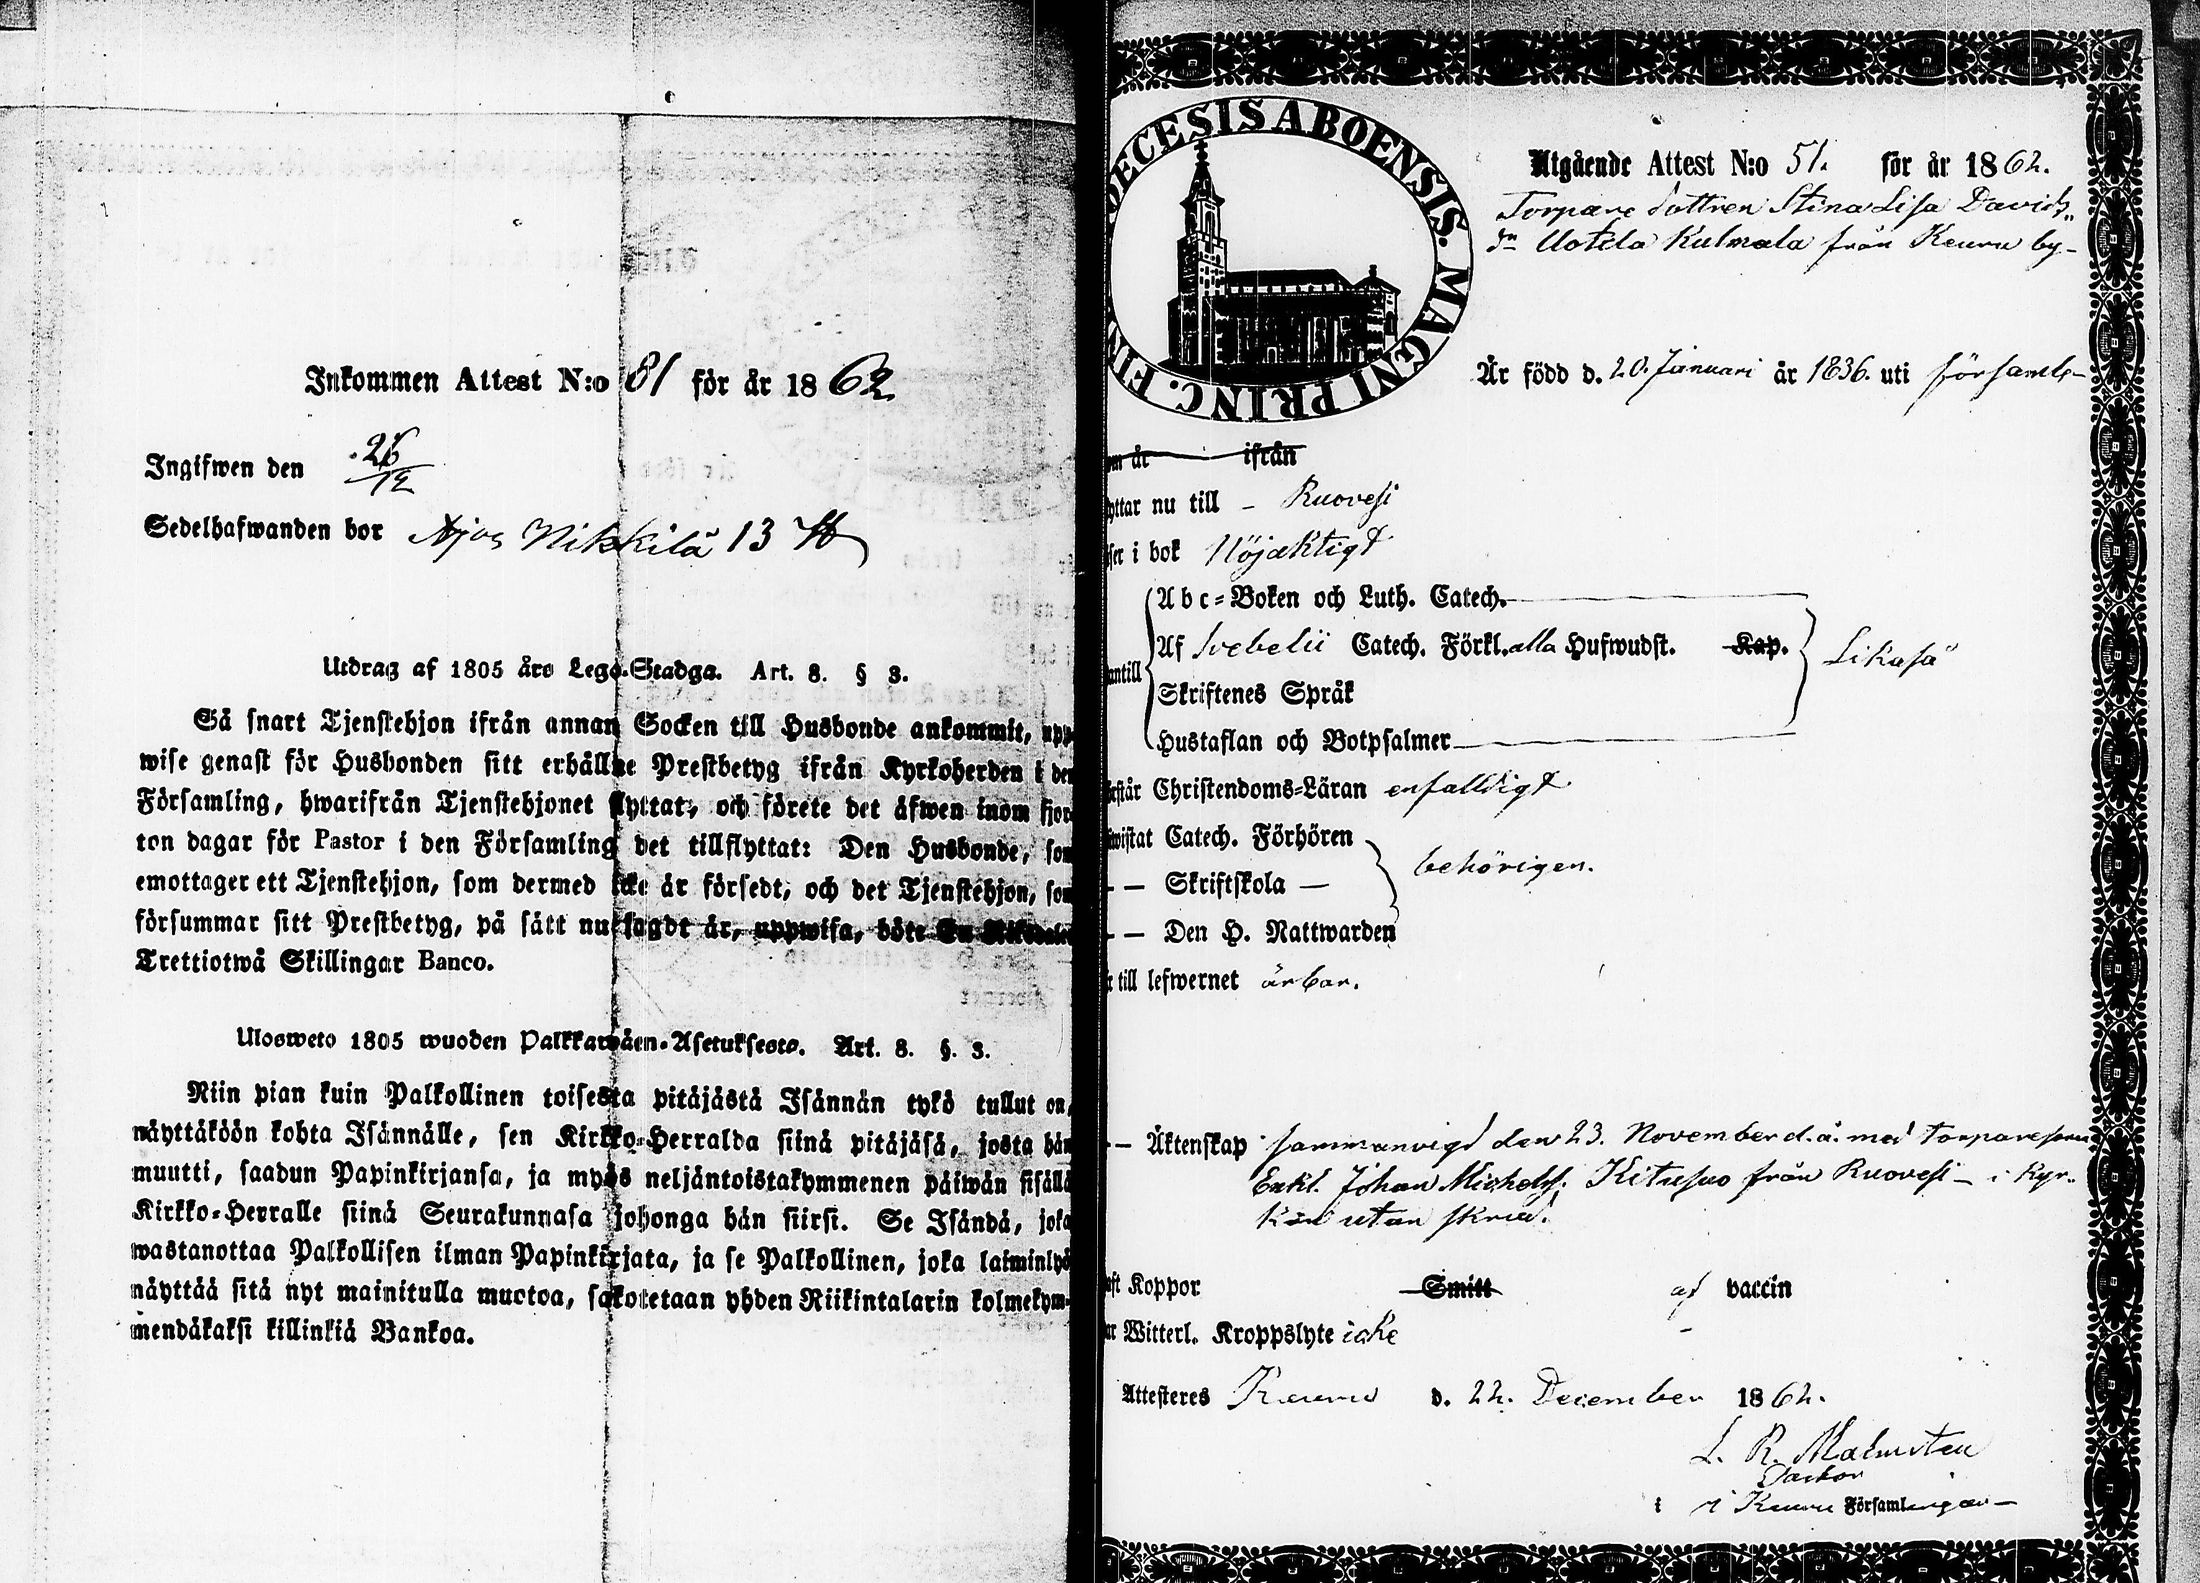 Inkommen Attest N:o 81 för år 1862
Ingifwen den 26/12
Sedelhafwanden bor Ajos Nikkilä 13
Utdrag af 1805 års Lego-Stadga. Art. 8. § 3.
Så snart Tjenstehjon ifrån annan Socken till Husbonde ankommit, upp
wise genast för Husbonden sitt erhållne Prestbetyg ifrån Kyrkoherden i den
Församling, hwarifrån Tjenstehjonet flyttat, och förete det äfwen inom fjor
ton dagar för Pastor i den Församling det tillflyttat: Den Husbonde, som
emottager ett Tjenstehjon, som dermed icke är försedt, och det Tjenstehjon, som
försummar sitt Prestbetyg, på sätt nu sagdt är, uppwisa, böte En Riksdaler
Trettiotwå Skillingar Banco.
Ulosweto 1805 wuoden Palkkawäen-Asetuksesta. Art. 8. §. 3.
Niin pian kuin Palkollinen toisesta pitäjästä Isännän tykö tullut on,
näyttäköön kohta Isännälle, sen Kirkko-Herralda siinä pitäjäsä, josta hän
muutti, saadun Papinkirjansa, ja myös neljäntoistakymmenen päiwän sisällä
Kirkko-Herralle siinä Seurakunnasa johonga hän siirsi. Se Isändä, joka
wastanottaa Palkollisen ilman Papinkirjata, ja se Palkollinen, joka laiminlyö
näyttää sitä nyt mainitulla muotoa, sakotetaan yhden Riikintalarin kolmekym-
mendäkaksi killinkiä Bankoa.
DECESIS ABOENSIS. MAGNI PRINC. FIN
Utgående Attest N:o 51. för år 1862.
Torpare dottren Stina Lisa Davids„
dr Uotila Kulmala från Keuru by–
Är född d. 20. Januari år 1836. uti församl–
om år ifrån
yttar nu till – Ruovesi
ser i bok Nöjaktigt
Abc-Boken och Luth. Catech.
antill Af Svebelii Catech. Förkl. alla Hufwudst. Kap. Likaså
Skriftenes Språk
Hustaflan och Botpsalmer
rstår Christendoms-Läran enfalldigt
wistat Catech. Förhören
– – Skriftskola – behörigen.
– – Den H. Nattwarden
r till lefwernet ärbar.
– – Äktenskap sammanvigd den 23. November d. å. med torparesonen
Enkl. Johan Michelss. Kitusuo från Ruovesi – i Kyr„
kan utan skrud.
aft Koppor Smitt af vaccin
ar Witterl. Kroppslyte icke
Attesteres Keuru d. 22. December 1862.
L. R. Malmsten
Pastor
i Keuru Församlingar–